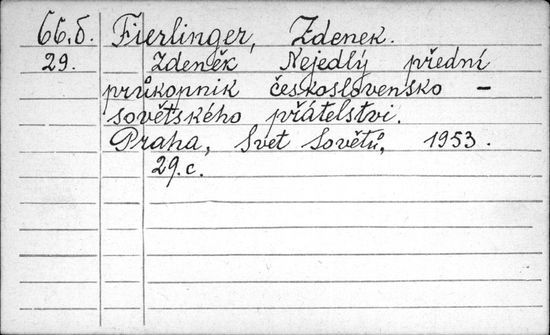 66.б. Fierlinger, Zdenek.
29. Zdeněk Nejedlý přední
průkopnik československo –
sovětského přátelstvi.
Praha, Svet Sovětů, 1953.
29.c.